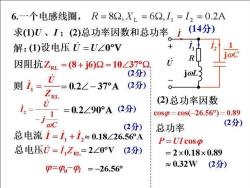 6.一个电感线圈， R = 8Ω, X_L = 6Ω, I₁ = I₂ = 0.2A
求(1)U 、I；(2)总功率和总功率因数 (14分)
解: (1)设电压 U̇ = U∠0°V
因阻抗Z_RL = (8 + j6)Ω = 10∠37°Ω
(2分)
则 İ₁ = U̇/Z_RL = 0.2∠− 37°A (2分)
İ₂ = U̇/(−j 1/ωC) = 0.2∠90°A (2分)
总电流 İ = İ₁ + İ₂ ≈ 0.18∠26.56°A
(2分)
总电压U̇ = İ₁Z_RL = 2∠0°V (2分)
φ=φ_u-φ_i = −26.56°
İ
+
U̇
−
İ₁
R
jωL
İ₂
1/jωC
(2)总功率因数
cosφ = cos(−26.56°) = 0.89
(2分)
总功率
P = UI cosφ
= 2×0.18×0.89
≈ 0.32W (2分)